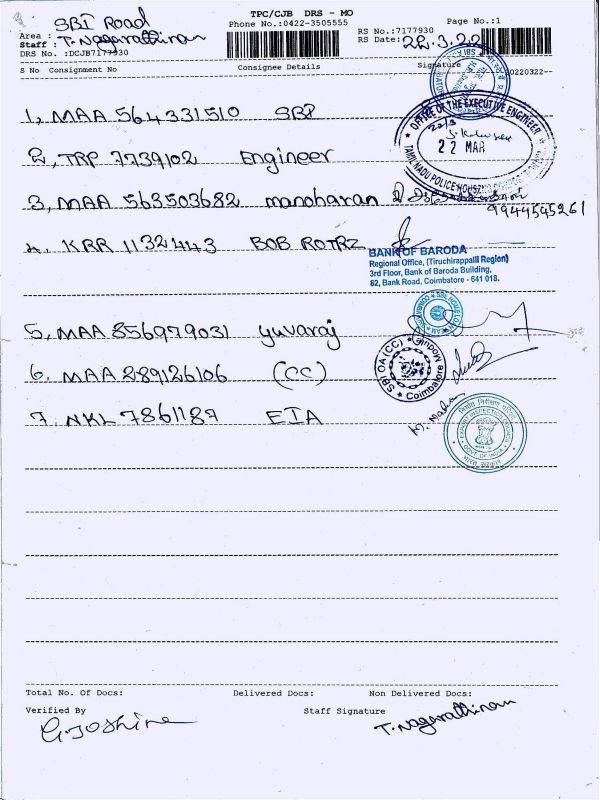 TPC/CJB DRS - MO
SBI Road
Phone No.:0422-3505555
Page No.:1
Area :
RS No.:7177930
Staff : T. Nagarathinam
RS Date: 22.3.22
DRS No. :DCJB7177930
S No Consignment No
Consignee Details
Signature
20220322--
1, MAA 564331510 SBI
OFFICE OF THE EXECUTIVE ENGINEER
22 MAR
TAMIL NADU POLICE HOUSING
2, TRP 7739102 Engineer
3, MAA 563503682 manoharan
9944545261
4. KRR 1132443 BOB ROTRZ
BANK OF BARODA
Regional Office, (Tiruchirappalli Region)
3rd Floor, Bank of Baroda Building,
82, Bank Road, Coimbatore - 641 018.
5, MAA 856979031 yuvaraj
6. MAA 289126106 (CC)
SBI OA (CC) Module Coimbatore
7. NKL 7861187 EIA
EXPORT INSPECTION
GOVT OF INDIA
Total No. Of Docs:
Delivered Docs:
Non Delivered Docs:
Verified By
Staff Signature
G. Joshine
T. Nagarathinam